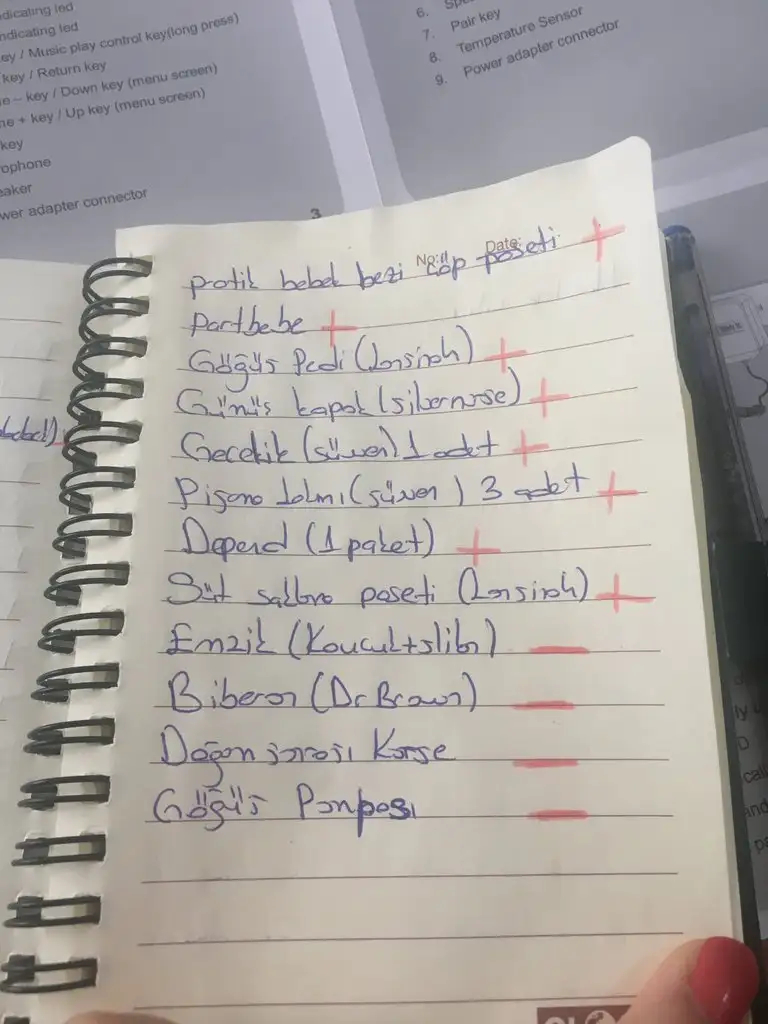 ndicating led
ndicating led
ey / Music play control key(long press)
key / Return key
e – key / Down key (menu screen)
me + key / Up key (menu screen)
key
ophone
eaker
wer adapter connector
3
6. Spe
7. Pair key
8. Temperature Sensor
9. Power adapter connector
No: Date:
pratik bebek bezi çöp poşeti +
Portbebe +
Göğüs Pedi (Lansinoh) +
Gümüş kapak (silvernurse) +
Gecelik (süwen) 1 adet +
Pijama takımı (süwen) 3 adet +
Depend (1 paket) +
Süt saklama poşeti (Lansinoh) +
Emzik ( –
Biberon (Dr Brown) –
Doğum sonrası Korse –
Göğüs Pompası –